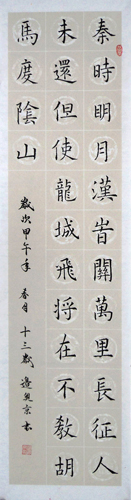 秦時明月漢旹關萬里長征人
未還但使龍城飛将在不教胡
馬度陰山
歲次甲午年 春月 十三歲 邊奥京书